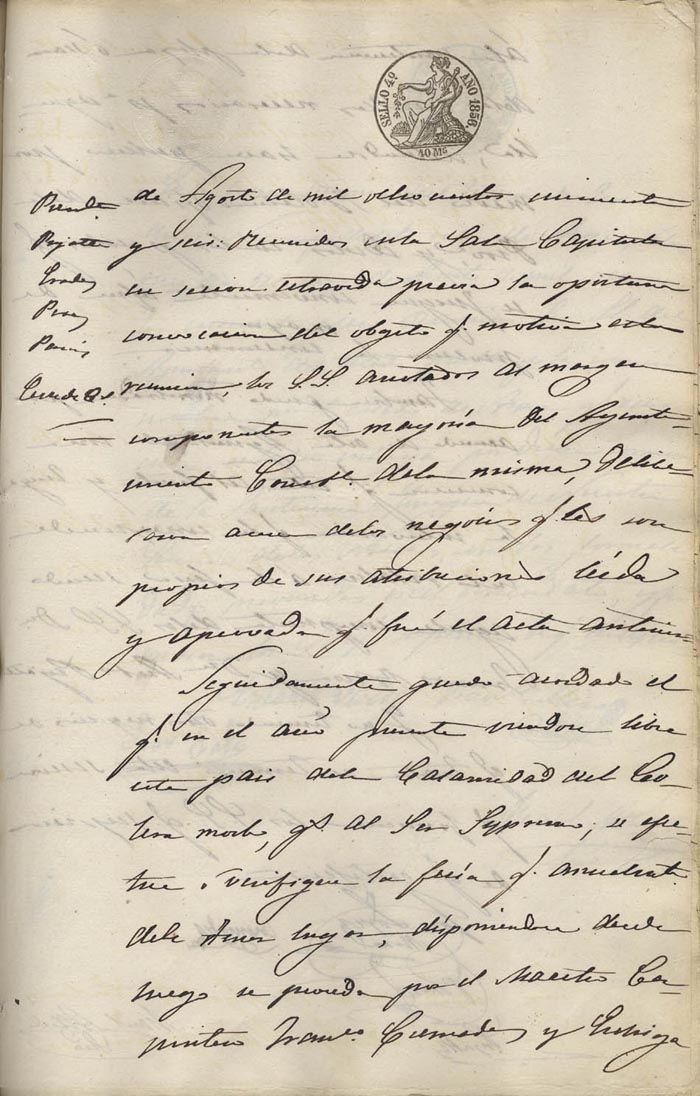 SELLO 4º AÑO 1856.
40 Ms
de Agosto de mil ochocientos cincuenta
y seis: Reunidos en la Sala Capitular
en sesion previa la oportuna
convocacion del objeto q.e motiva esta
reunion, los S.S. anotados al margen
componentes la mayoria del Ayunta-
miento Const.l de la misma, delibe-
raron acerca de los negocios q.e les son
propios de sus atribuciones leida
y aprovada q.e fué el acta anterior
Seguidamente quedo acordado el
q.e en el año presente viendose libre
este pais de la Calamidad del Co-
lera morbo, g.s al Ser Supremo, se efec-
tue o verifique la feria q.e anualm.te
debe tener lugar, disponiendose desde
luego se proceda por el Maestro Car-
pintero Fran.co y